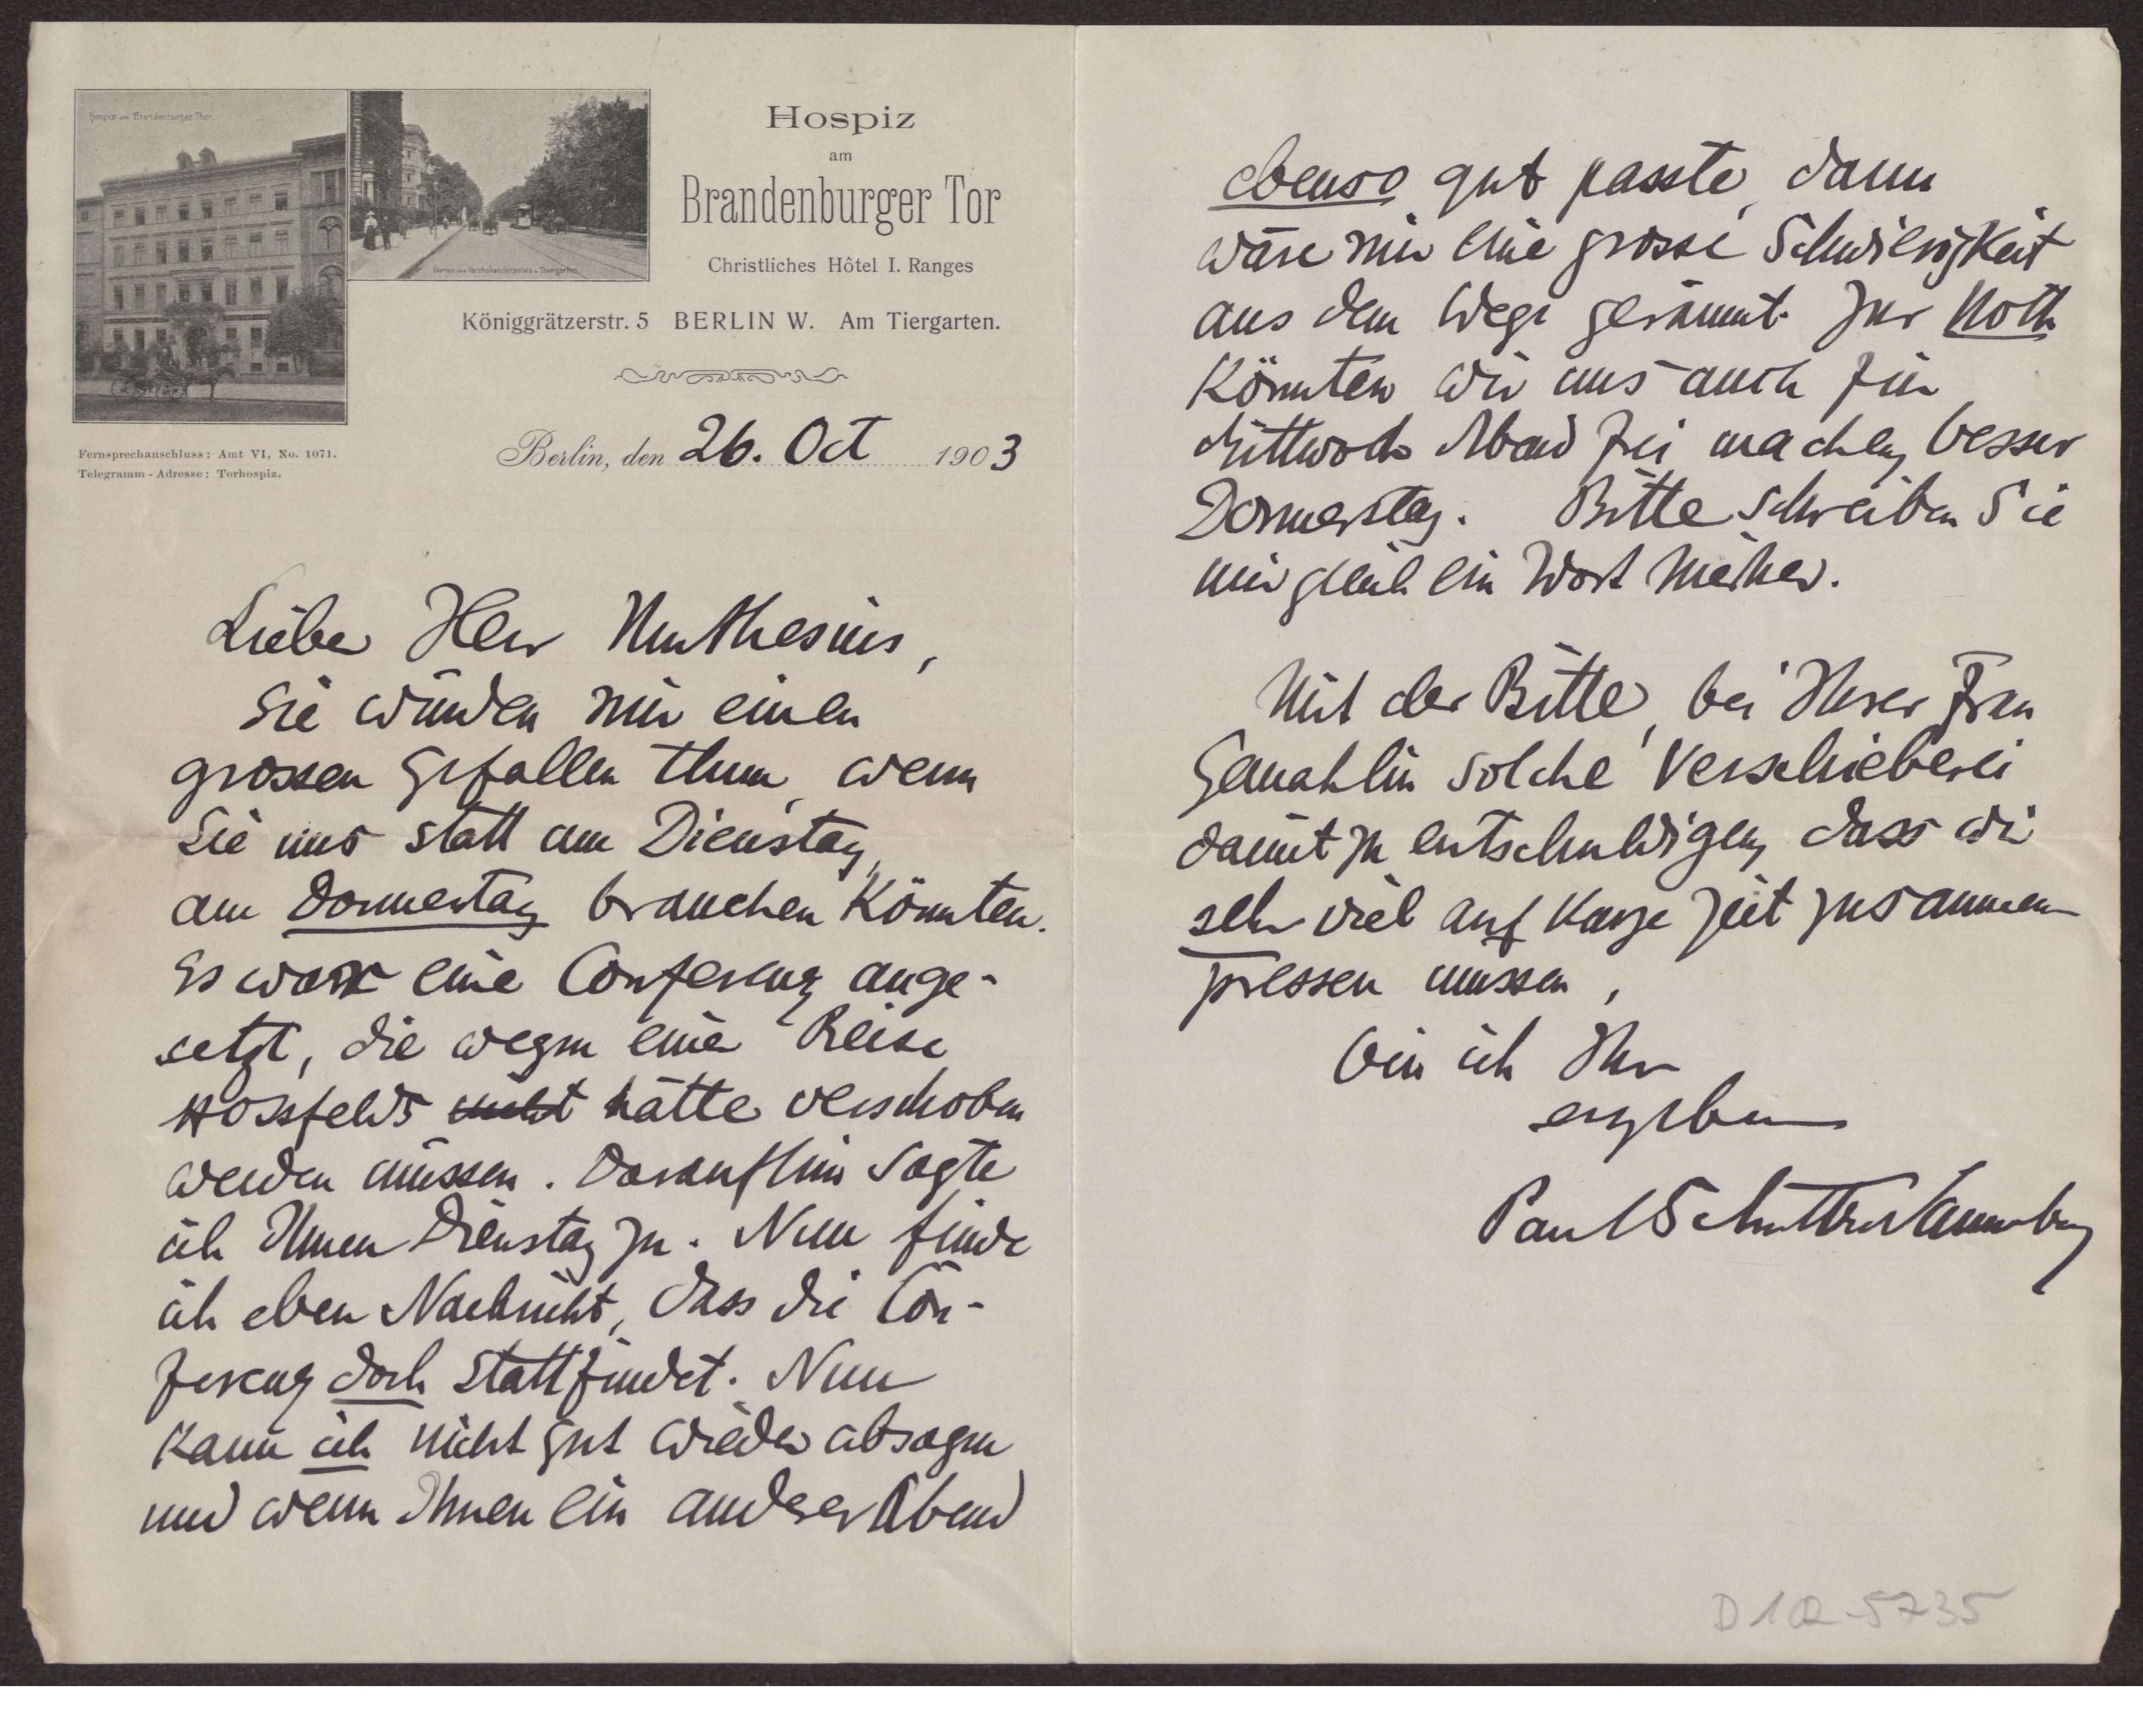 Hospiz am Brandenburger Thor.
Garten am Reichskanzlerpalais u. Tiergarten
Hospiz
am
Brandenburger Tor
Christliches Hôtel I. Ranges
Königgrätzerstr. 5 BERLIN W. Am Tiergarten.
Fernsprechanschluss: Amt VI, No. 1071.
Telegramm-Adresse: Torhospiz.
Berlin, den 26. Oct 1903
Lieber Herr Muthesius,
Sie würden mir einen
grossen Gefallen thun, wenn
Sie uns statt am Dienstag,
am Donnerstag brauchen könnten.
Es war eine Conferenz ange-
setzt, die wegen einer Reise
Hossfelds nicht hätte verschoben
werden müssen. Daraufhin sagte
ich Ihnen Dienstag zu. Nun finde
ich eben Nachricht, dass die Con-
ferenz doch stattfindet. Nun
kann ich nicht gut wieder absagen
und wenn Ihnen ein andrer Abend
ebenso gut passte, dann
wäre mir eine grosse Schwierigkeit
aus dem Wege geräumt. Zur Noth
könnten wir uns auch für
Mittwoch Abend frei machen, besser
Donnerstag. Bitte schreiben Sie
mir gleich ein Wort hierher.
Mit der Bitte, bei Ihrer Frau
Gemahlin solche Verschieberei
damit zu entschuldigen, dass wir
sehr viel auf kurze Zeit zusammen
pressen müssen,
bin ich Ihr
ergebener
Paul Schultze Naumburg
D 102-5735